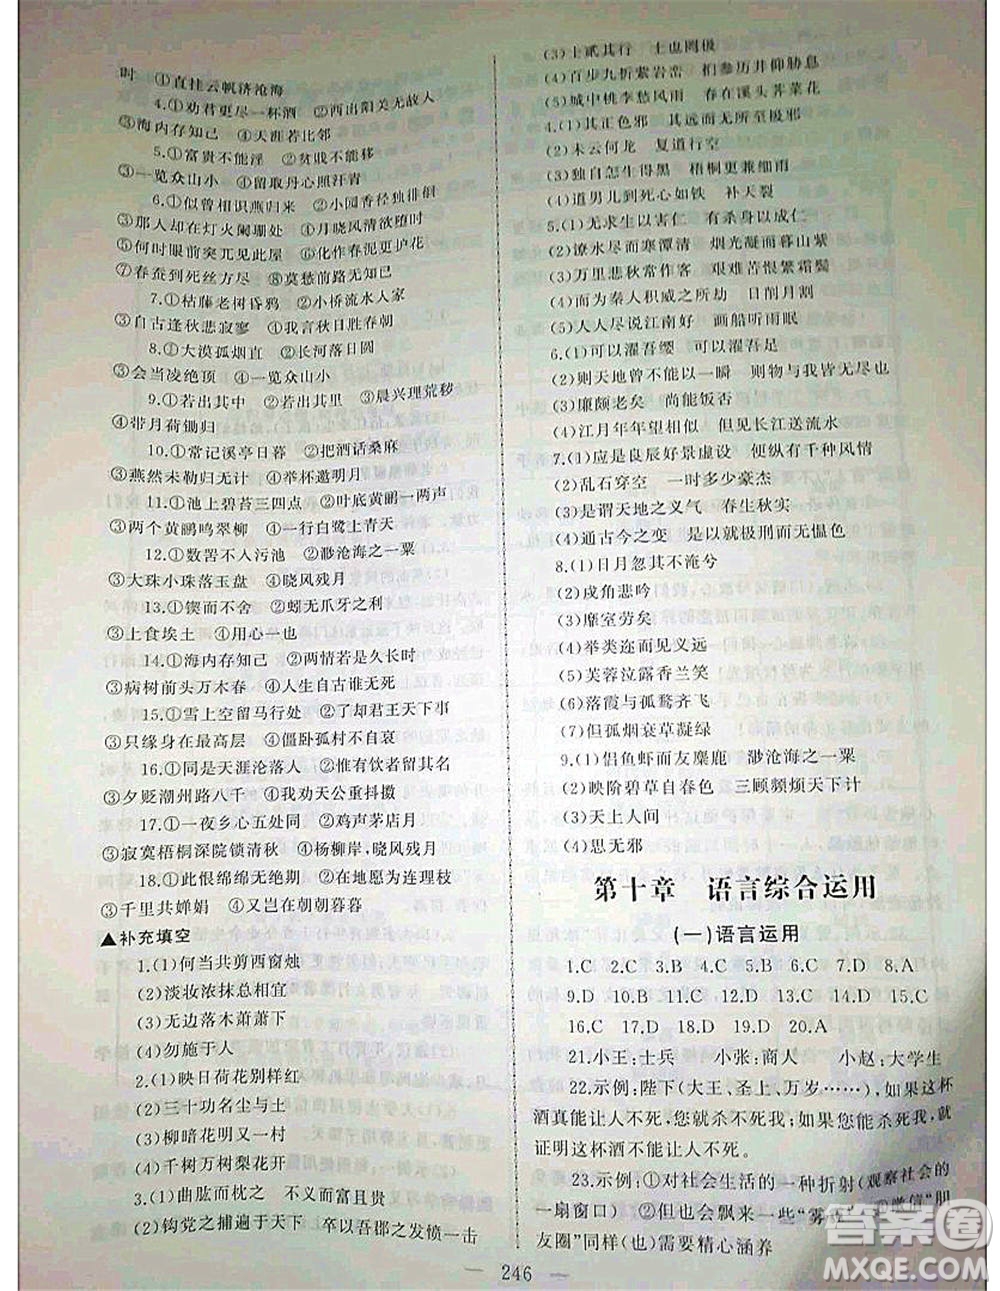 时　①直挂云帆济沧海
4.①劝君更尽一杯酒　②西出阳关无故人
③海内存知己　④天涯若比邻
5.①富贵不能淫　②贫贱不能移
③一览众山小　④留取丹心照汗青
6.①似曾相识燕归来　②小园香径独徘徊
③那人却在灯火阑珊处　④月晓风清欲堕时
⑤何时眼前突兀见此屋　⑥化作春泥更护花
⑦春蚕到死丝方尽　⑧莫愁前路无知己
7.①枯藤老树昏鸦　②小桥流水人家
③自古逢秋悲寂寥　④我言秋日胜春朝
8.①大漠孤烟直　②长河落日圆
③会当凌绝顶　④一览众山小
9.①若出其中　②若出其里　③晨兴理荒秽
④带月荷锄归
10.①常记溪亭日暮　②把酒话桑麻
③燕然未勒归无计　④举杯邀明月
11.①池上碧苔三四点　②叶底黄鹂一两声
③两个黄鹂鸣翠柳　④一行白鹭上青天
12.①数罟不入污池　②渺沧海之一粟
③大珠小珠落玉盘　④晓风残月
13.①锲而不舍　②蚓无爪牙之利
③上食埃土　④用心一也
14.①海内存知己　②两情若是久长时
③病树前头万木春　④人生自古谁无死
15.①雪上空留马行处　②了却君王天下事
③只缘身在最高层　④僵卧孤村不自哀
16.①同是天涯沦落人　②惟有饮者留其名
③夕贬潮州路八千　④我劝天公重抖擞
17.①一夜乡心五处同　②鸡声茅店月
③寂寞梧桐深院锁清秋　④杨柳岸,晓风残月
18.①此恨绵绵无绝期　②在地愿为连理枝
③千里共婵娟　④又岂在朝朝暮暮
▲补充填空
1.(1)何当共剪西窗烛
(2)淡妆浓抹总相宜
(3)无边落木萧萧下
(4)勿施于人
2.(1)映日荷花别样红
(2)三十功名尘与土
(3)柳暗花明又一村
(4)千树万树梨花开
3.(1)曲肱而枕之　不义而富且贵
(2)钩党之捕遍于天下　卒以吾郡之发愤一击
(3)士贰其行　士也罔极
(4)百步九折萦岩峦　扪参历井仰胁息
(5)城中桃李愁风雨　春在溪头荠菜花
4.(1)其正色邪　其远而无所至极邪
(2)未云何龙　复道行空
(3)独自怎生得黑　梧桐更兼细雨
(4)道男儿到死心如铁　补天裂
5.(1)无求生以害仁　有杀身以成仁
(2)潦水尽而寒潭清　烟光凝而暮山紫
(3)万里悲秋常作客　艰难苦恨繁霜鬓
(4)而为秦人积威之所劫　日削月割
(5)人人尽说江南好　画船听雨眠
6.(1)可以濯吾缨　可以濯吾足
(2)则天地曾不能以一瞬　千乘万骑西南行
(3)廉颇老矣　尚能饭否
(4)江月年年望相似　但见长江送流水
7.(1)应是良辰好景虚设　便纵有千种风情
(2)乱石穿空　一时多少豪杰
(3)是谓天地之义气　春生秋实
(4)通古今之变　是以就极刑而无愠色
8.(1)日月忽其不淹兮
(2)戍角悲吟
(3)靡室劳矣
(4)举类迩而见义远
(5)芙蓉泣露香兰笑
(6)落霞与孤鹜齐飞
(7)但孤烟衰草凝绿
9.(1)侣鱼虾而友麋鹿　渺沧海之一粟
(2)映阶碧草自春色　三顾频烦天下计
(3)天上人间
(4)思无邪
第十章　语言综合运用
(一)语言运用
1.C　2.C　3.B　4.C　5.A　6.C　7.D　8.A
9.D　10.B　11.C　12.D　13.A　14.D　15.C
16.C　17.D　18.D　19.D　20.A
21.小王:士兵　小张:商人　小赵:大学生
22.示例:陛下(大王、圣上、万岁……),如果这杯
酒真能让人不死,您就杀不死我;如果您能杀死我,就
证明这杯酒不能让人不死。
23.示例:①对社会生活的一种折射(观察社会的
一扇窗口)　②也会飘来一些“雾　①微信“朋
友圈”同样(也)需要精心涵养
246
答案圈
MXQE.COM